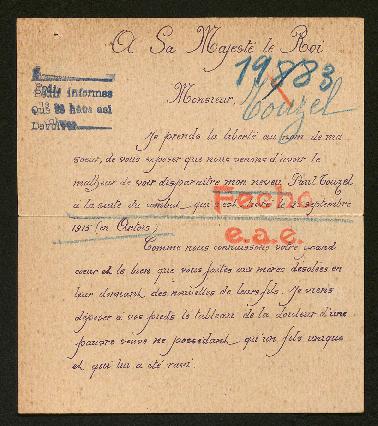 A Sa Majesté le Roi
19883
Touzel
Pide informes
Que se hate asi
Devolver
Monsieur,
Je prends la liberté au nom de ma
soeur, de vous exposer que nous venons d'avoir le
malheur de voir disparaître mon neveu Paul Touzel
à la suite du combat, qui s'est livré le 25 septembre
1915 (en Artois)
Fecho
e.a.e.
Comme nous connaissons votre grand
coeur et le bien que vous faites aux mères désolées en
leur donnant des nouvelles de leurs fils. Je viens
déposer à vos pieds le tableau de la douleur d'une
pauvre veuve ne possédant qu'un fils unique
et qui lui a été ravi.